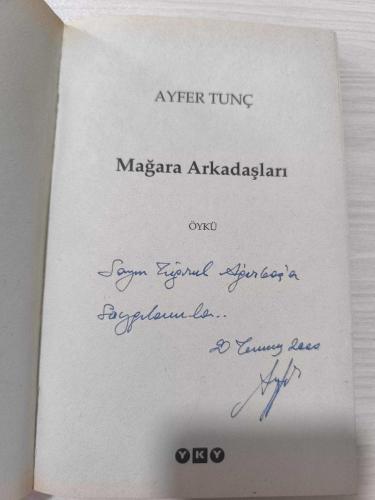 AYFER TUNÇ
Mağara Arkadaşları
ÖYKÜ
Sayın Tuğrul Ağırbaş'a
Saygılarımla..
20 Temmuz 2000
Ayfer
YKY